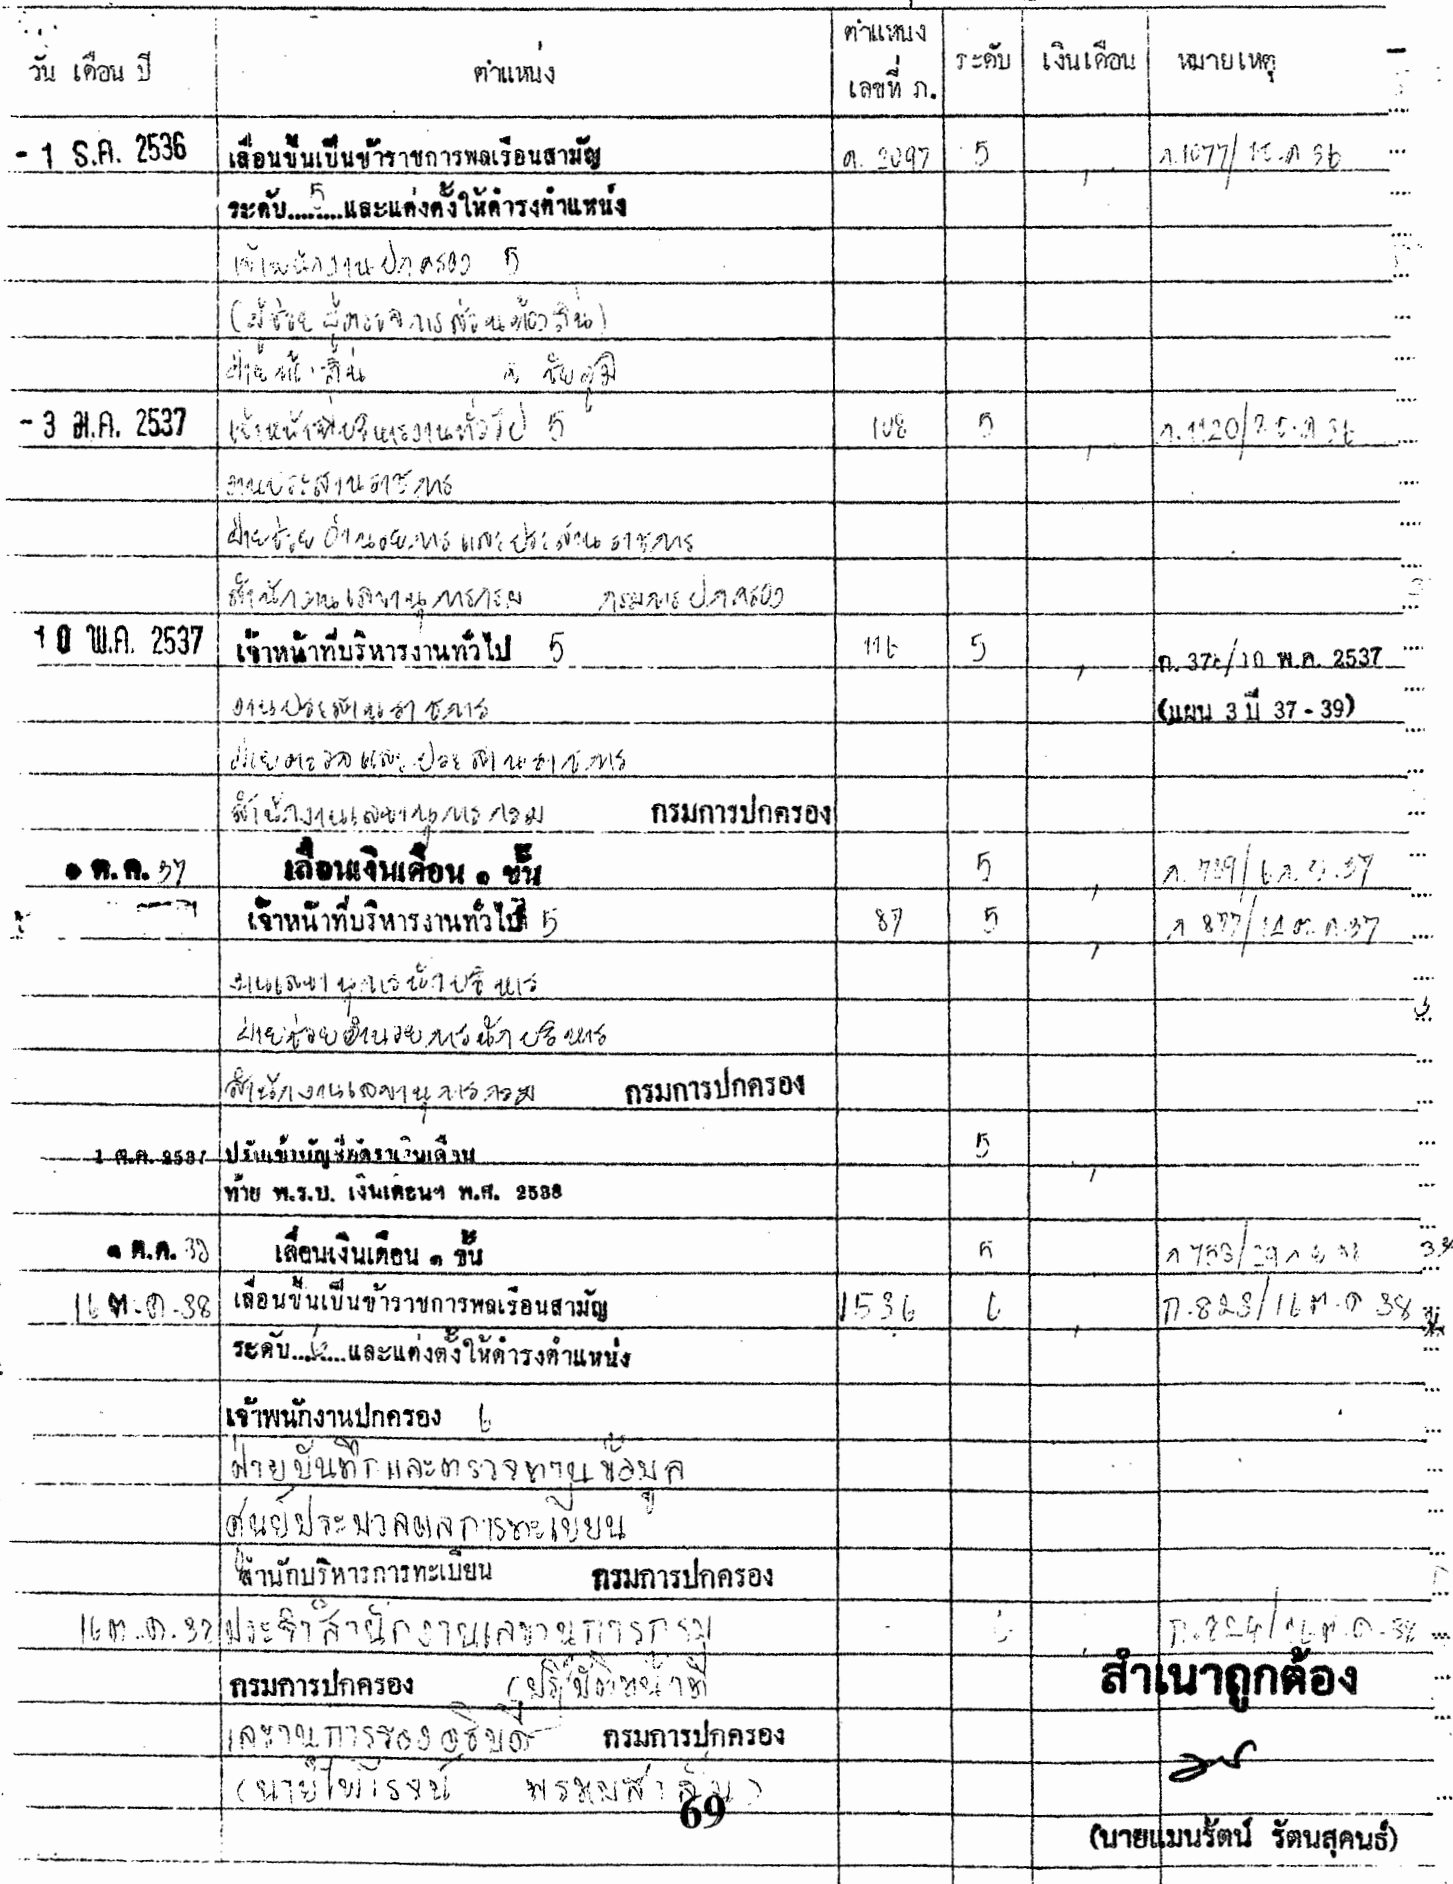 วัน เดือน ปี ตำแหน่ง ตำแหน่ง เลขที่ ก. ระดับ เงินเดือน หมายเหตุ
- 1 ธ.ค. 2536 เลื่อนขึ้นเป็นข้าราชการพลเรือนสามัญ ก. 2097 5
ระดับ...5...และแต่งตั้งให้ดำรงตำแหน่ง
เจ้าพนักงานปกครอง 5
(ผู้ช่วยผู้ตรวจการส่วนท้องถิ่น)
ฝ่ายท้องถิ่น จ ชัยภูมิ
- 3 ม.ค. 2537 เจ้าหน้าที่บริหารงานทั่วไป 5 108 5
งานประสานราชการ
ฝ่ายช่วยอำนวยการและประสานราชการ
สำนักงานเลขานุการกรม กรมการปกครอง
10 พ.ค. 2537 เจ้าหน้าที่บริหารงานทั่วไป 5 116 5 10 พ.ค. 2537
งานประสานราชการ (แผน 3 ปี 37 - 39)
ฝ่ายตรวจและประสานราชการ
สำนักงานเลขานุการกรม กรมการปกครอง
๑ ต.ค. 37 เลื่อนเงินเดือน ๑ ขั้น 5
เจ้าหน้าที่บริหารงานทั่วไป 5 87 5 ก 877/12 ต.ค.37
งานเลขานุการนักบริหาร
ฝ่ายช่วยอำนวยการนักบริหาร
สำนักงานเลขานุการกรม กรมการปกครอง
1 ต.ค. 2537 ปรับเข้าบัญชีอัตราเงินเดือน 5
ท้าย พ.ร.บ. เงินเดือนฯ พ.ศ. 2538
๑ ต.ค. 38 เลื่อนเงินเดือน ๑ ขั้น 5
16 ต.ค.38 เลื่อนขึ้นเป็นข้าราชการพลเรือนสามัญ 1536 6 ก.823/16 ต.ค 38
ระดับ...6...และแต่งตั้งให้ดำรงตำแหน่ง
เจ้าพนักงานปกครอง 6
ฝ่ายบันทึกและตรวจทานข้อมูล
ศูนย์ประมวลผลการทะเบียน
สำนักบริหารการทะเบียน กรมการปกครอง
16 ต.ค.38 ประจำสำนักงานเลขานุการกรม 6 ก.824/16 ต.ค.38
กรมการปกครอง (ปฏิบัติหน้าที่
เลขานุการรองอธิบดี กรมการปกครอง
(นายไพโรจน์ พรหมสาส์น)
สำเนาถูกต้อง
69
(นายแมนรัตน์ รัตนสุคนธ์)